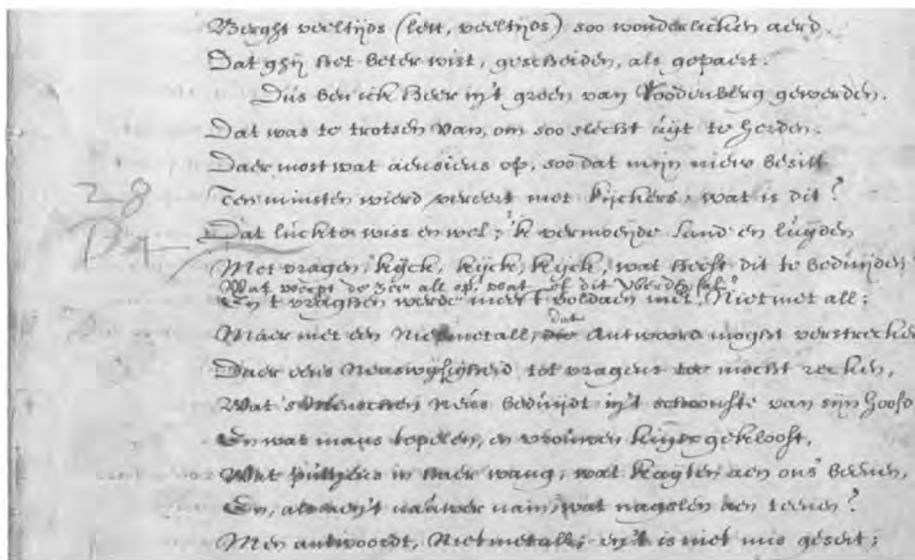 Berght veeltijds (lett, veeltijds) soo wonderlicken aerd.
Dat ghij het beter wist, gescheiden, als gepaert.
Dus ben ick Heer in't groen van Loodenberg gewerden.
Dat was te trotsen van, om soo slecht uijt te herden.
Daer most wat aensiens op, soo dat mijn nieuw besitt
28
Ten minsten wierd vereert met kijckers, wat is dit?
Dat luckte wiss en wel; 'k vermoeyde Land en luyden
Met vragen, kijck, kijck, kijck, wat heeft dit te beduijden?
Wat werpt de Zee all op, wat of dit
En 't vraghen werde meer voldaen met Nietmet all;
Maer met een Nietmetall, dat Antwoord moght verstrecken
Daer eens Neuswijsigheid tot vragens toe mocht recken,
Wat 's menschen Neus beduijdt in't schoonste van sijn Hoofd
En wat mans topelen, en vrouwen kinne geklooft,
Wat puttjens in haer wang, wat kuyten aen ons beenen,
En, alsmen't nauwer nam, wat nagelen aen teenen?
Men antwoordt, Nietmetall; en't is niet mis geseit;